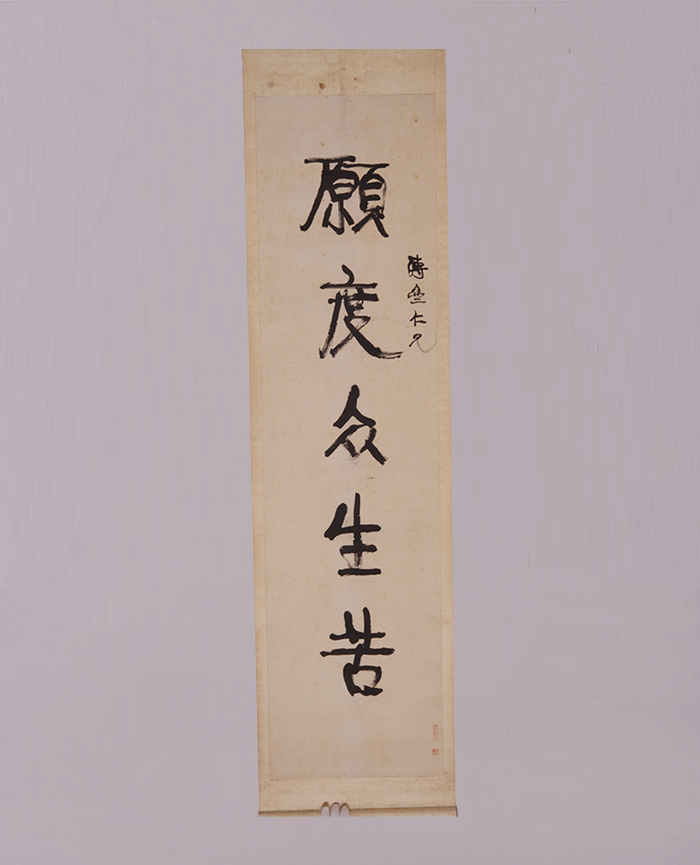 仁兄
願度众生苦